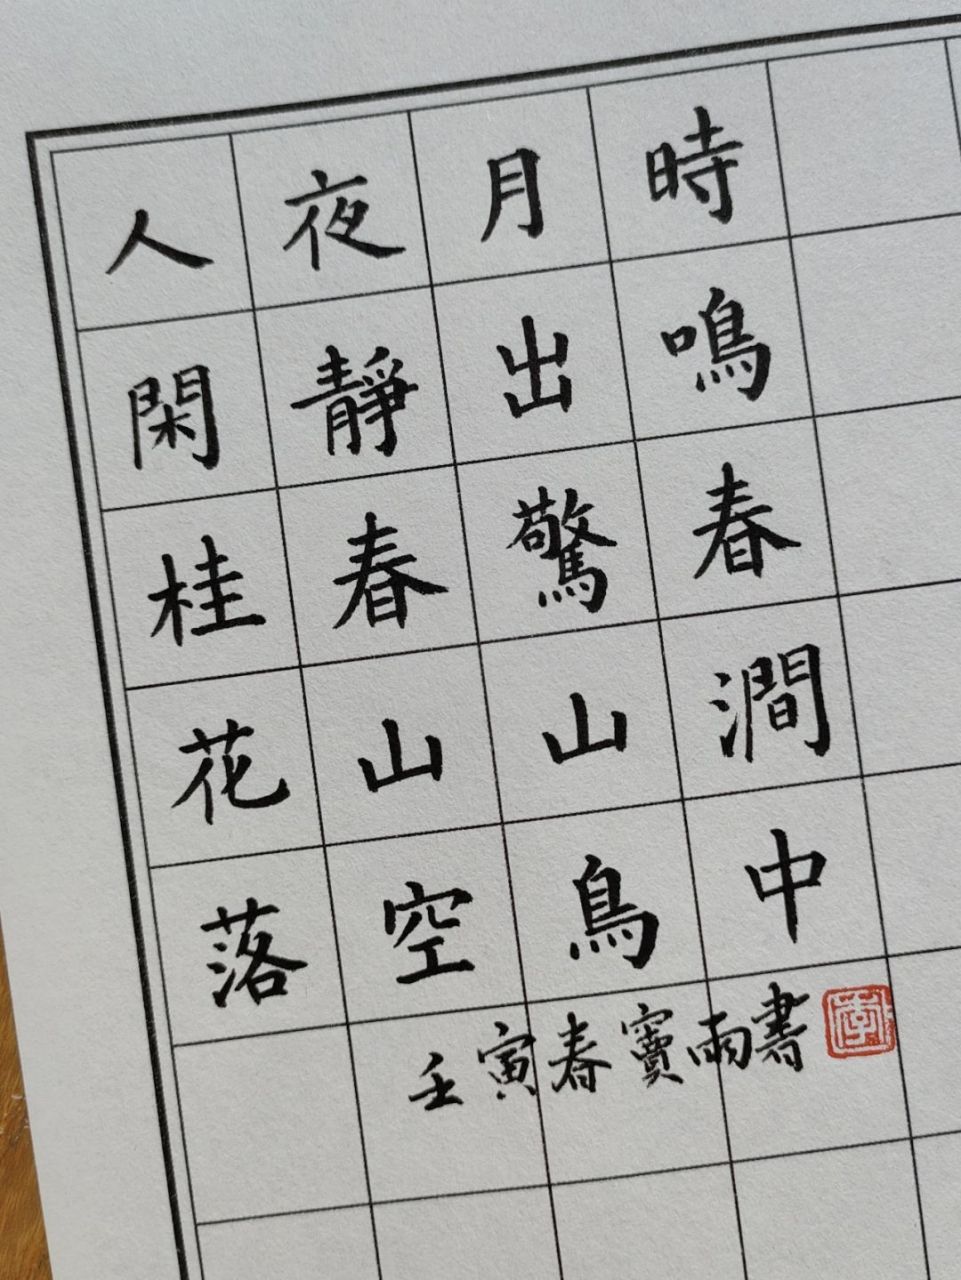 人閑桂花落
夜靜春山空
月出驚山鳥
時鳴春澗中
壬寅春竇雨書